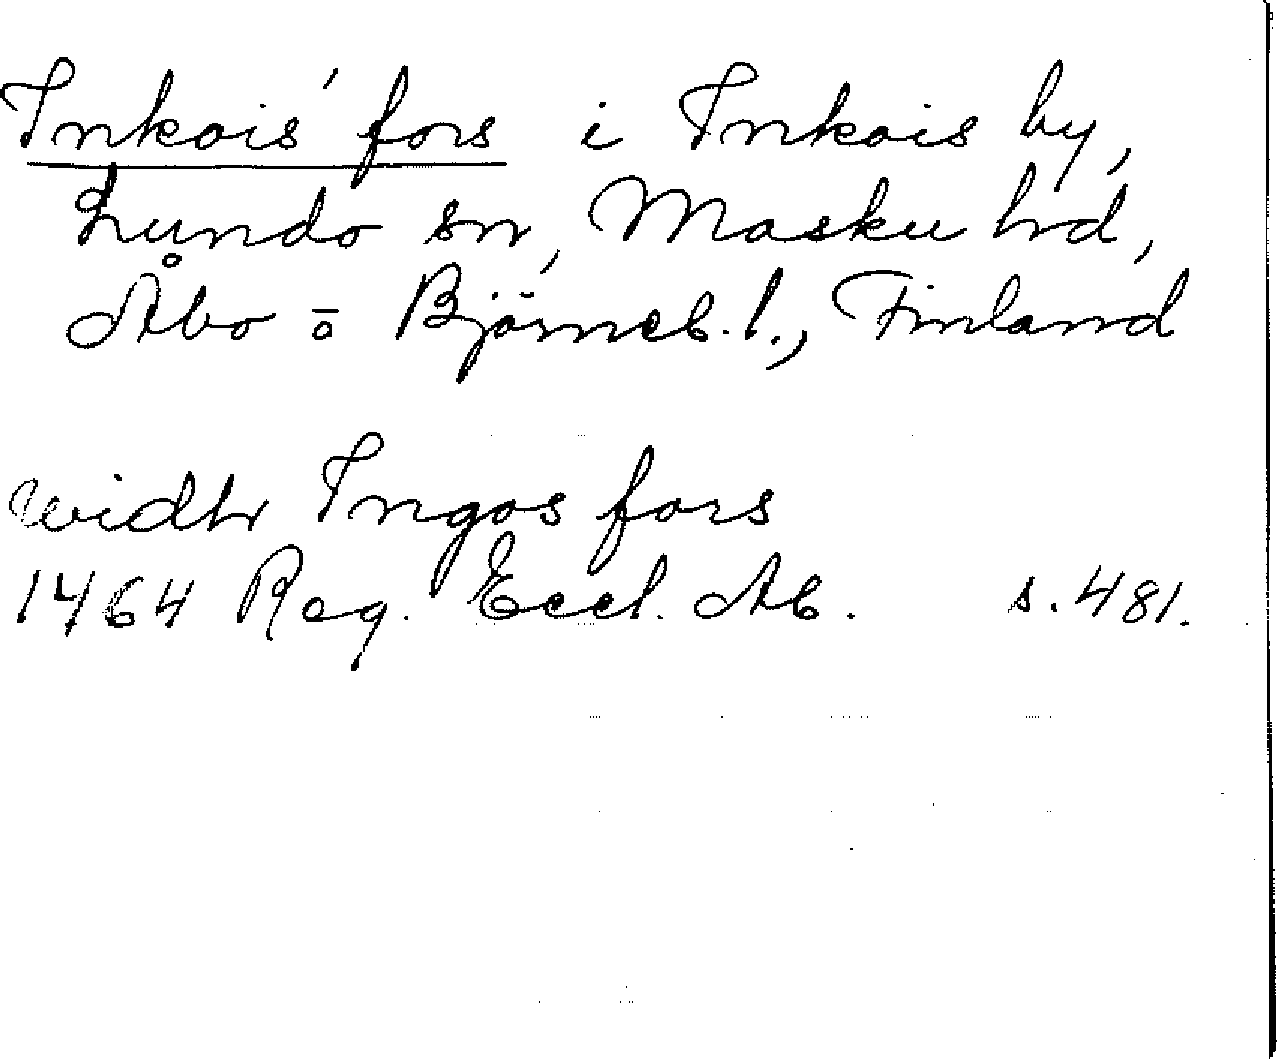 Inkois' fors i Inkois by,
Lundo sn, Masku hd,
Åbo o Björneb. l., Finland
widhr Ingos fors
1464 Reg. Eccl. Ab. s. 481.